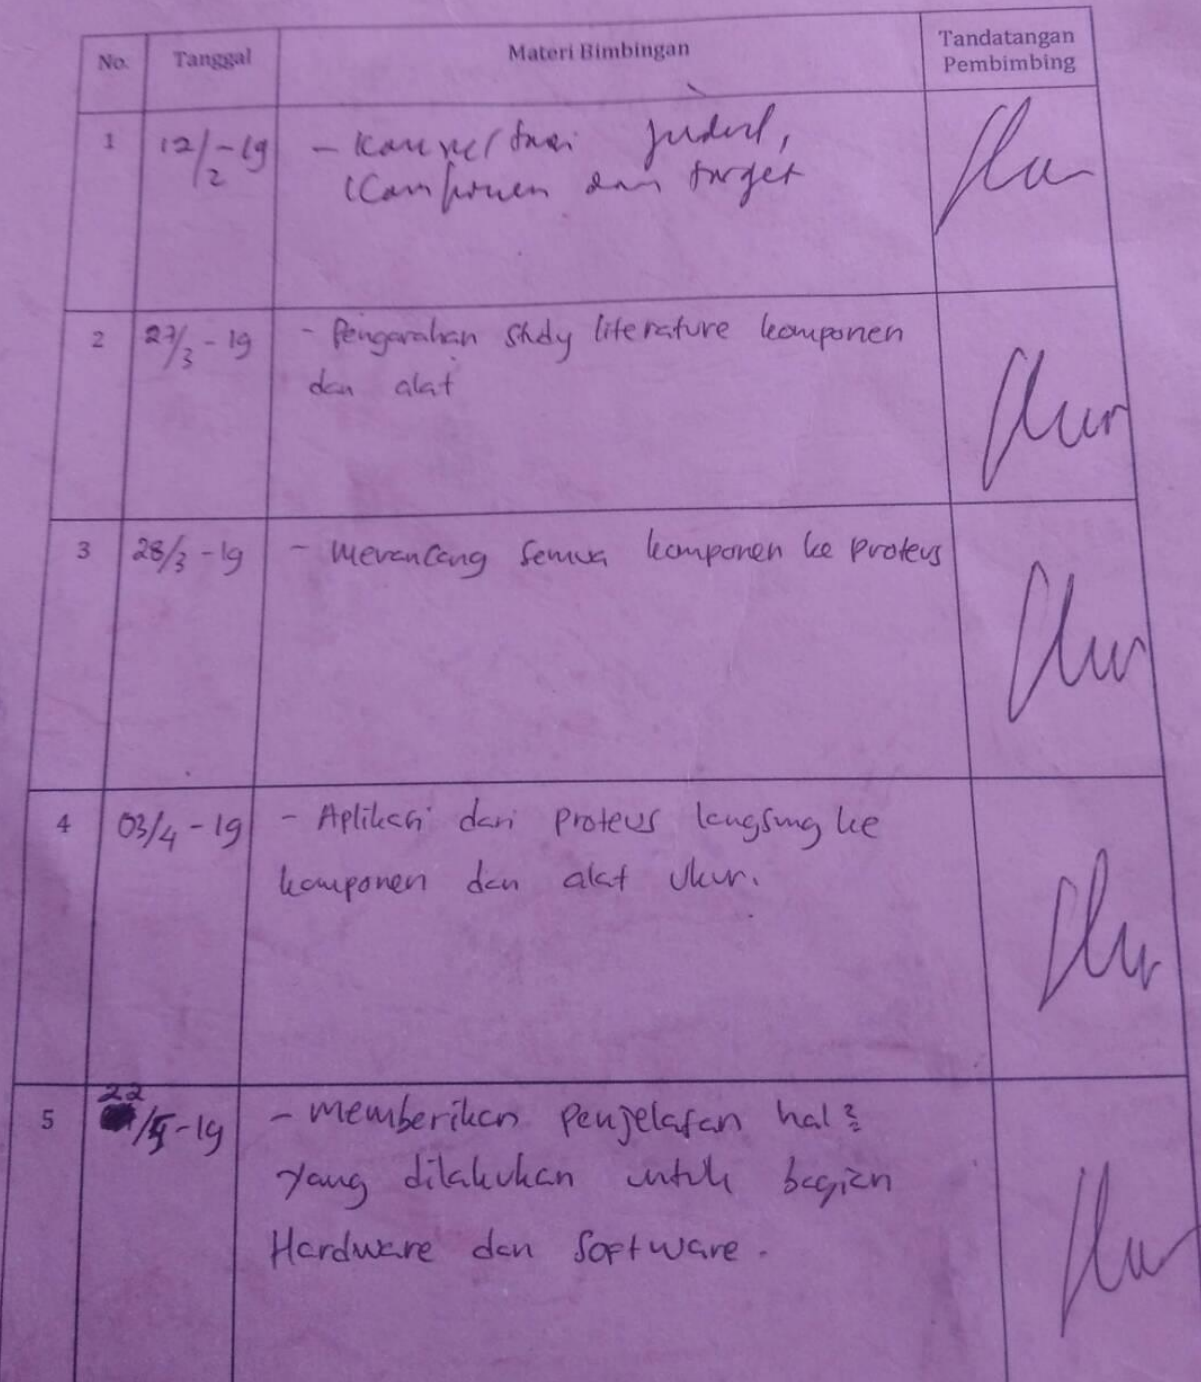 No. Tanggal Materi Bimbingan Tandatangan Pembimbing
1 12/2-19 - judul,
Komponen dan target
2 27/3-19 - Pengarahan study literature komponen
dan alat
3 28/3-19 - Merancang semua komponen ke proteus
4 03/4-19 - Aplikasi dari proteus langsung ke
komponen dan alat ukur.
5 22/5-19 - Memberikan penjelasan hal2
yang dilakukan untuk bagian
Hardware dan Software.